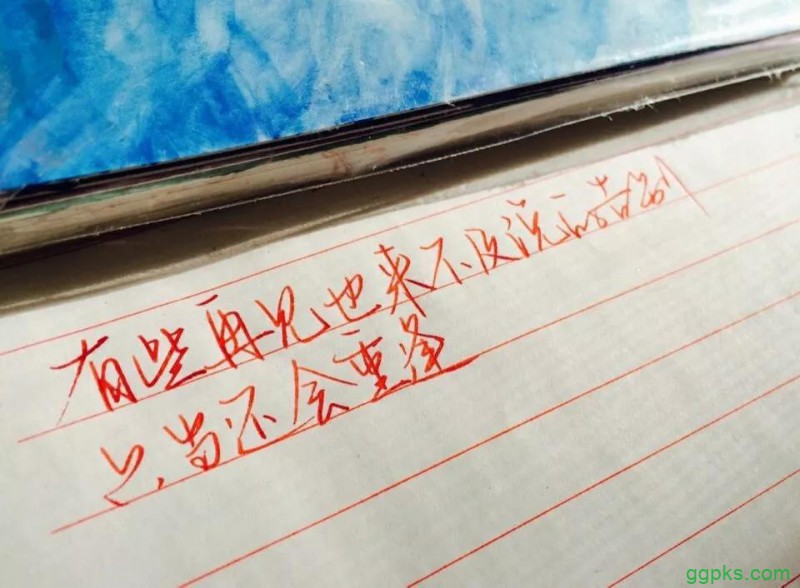 有些再见也来不及说 言告别
只当还会重逢
ggpks.com